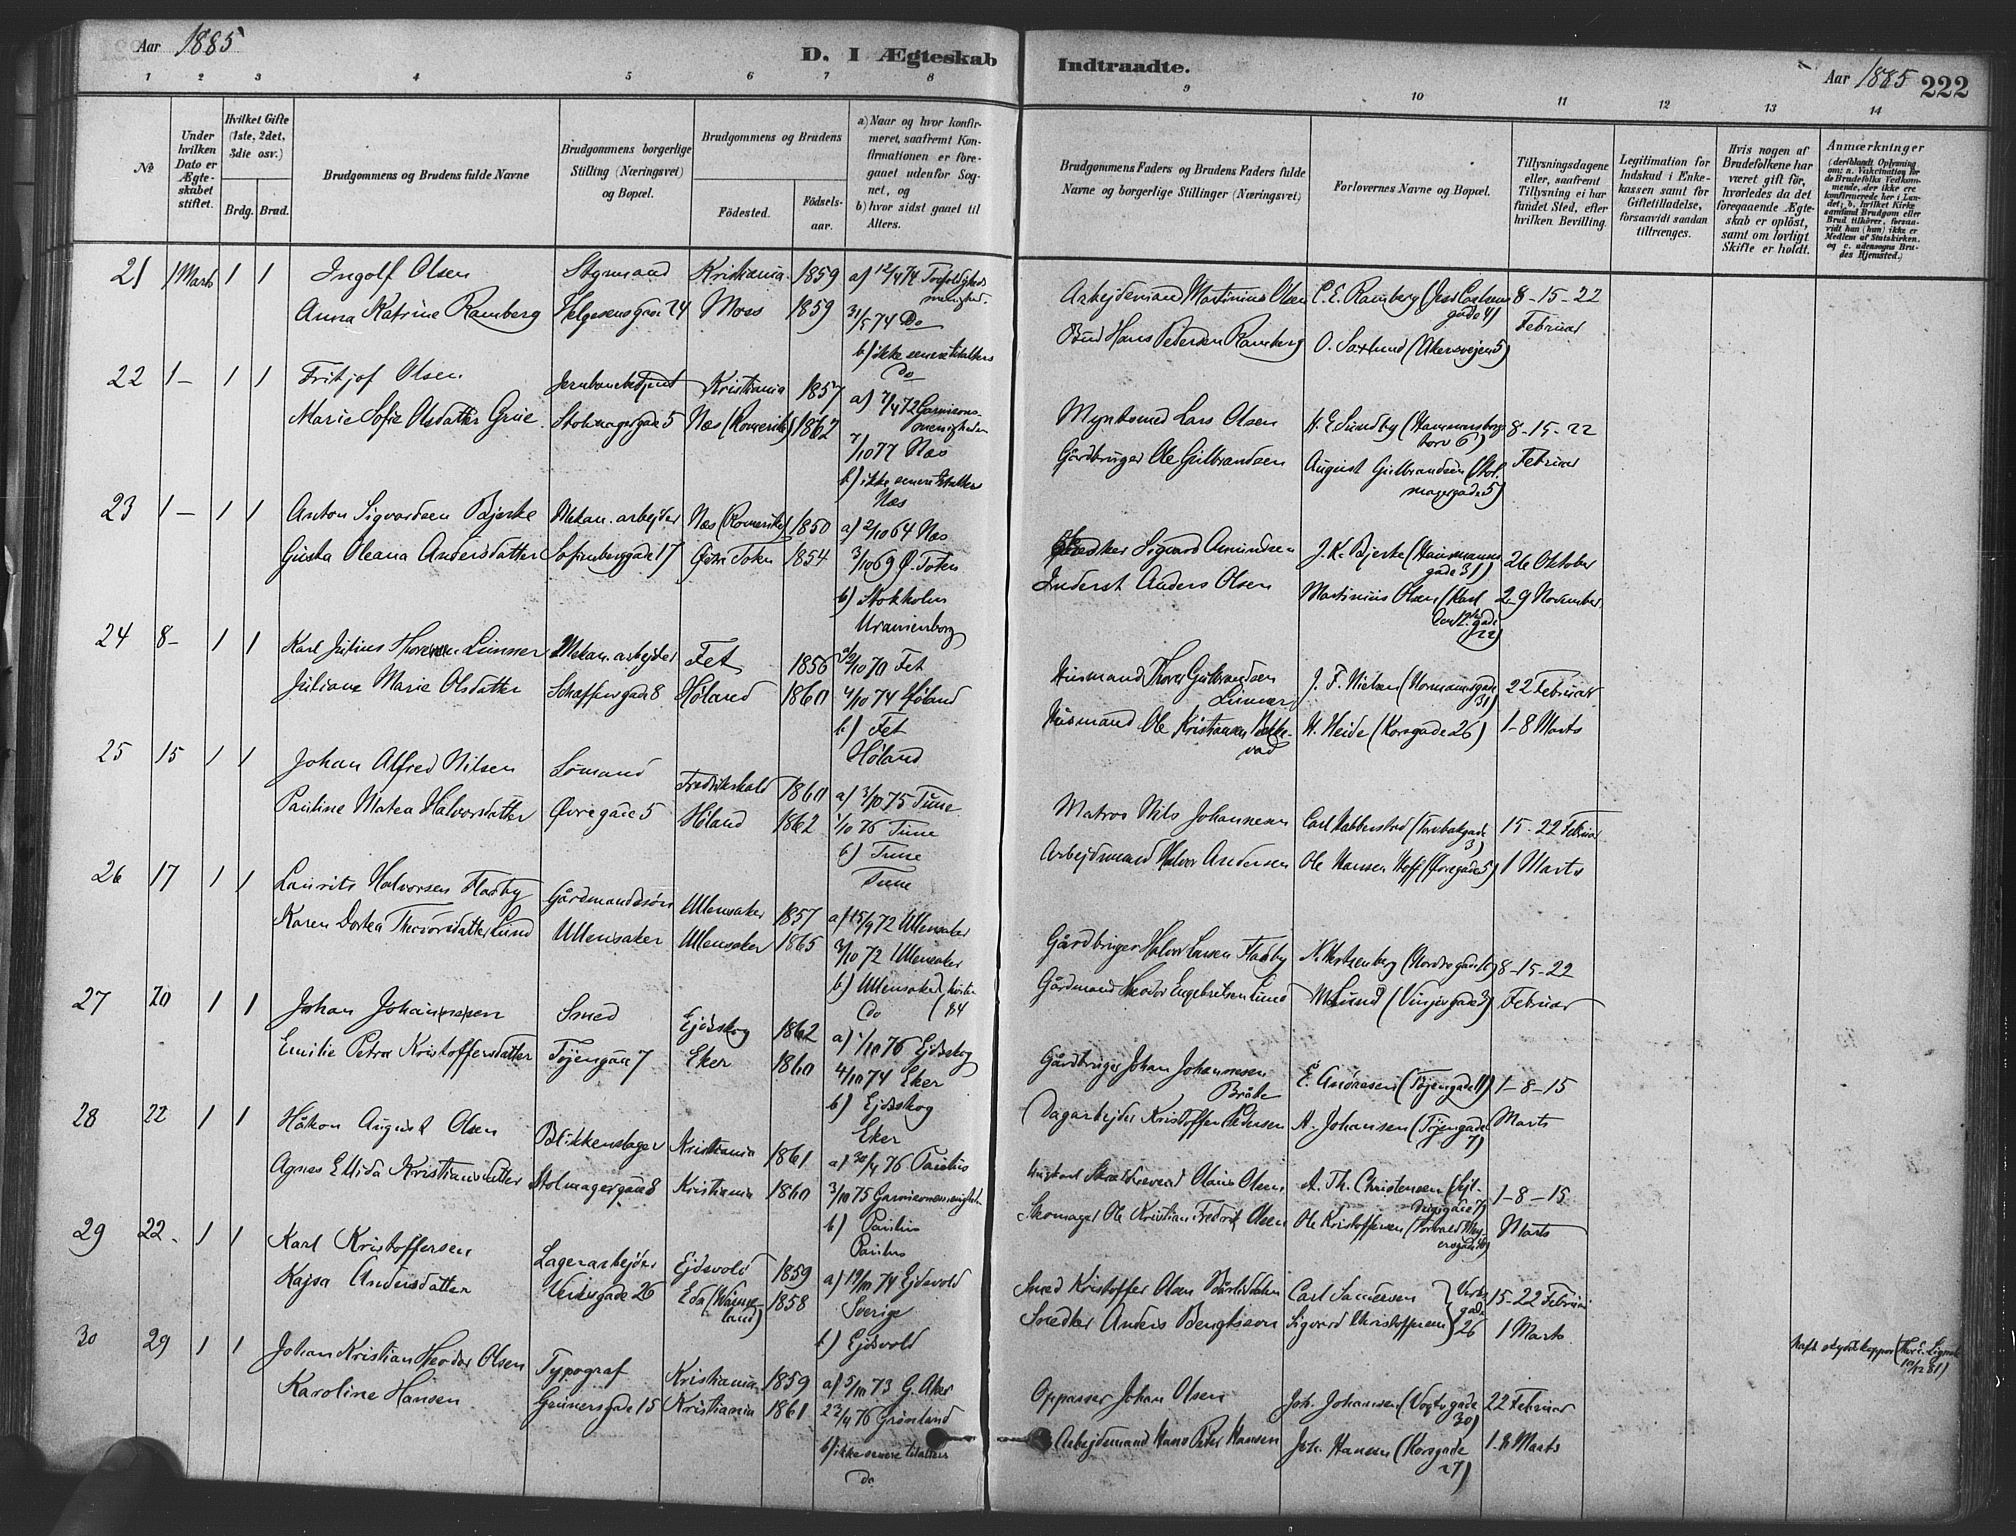 Aar 1885
D. I Ægteskab Indtraadte.
Aar 1885 222
1 2 3 4 5 6 7 8 9 10 11 12 13 14
No
Under hvilken Dato er Ægteskabet stiftet.
Hvilket Gifte (1ste, 2det, 3die osv.)
Brdg. Brud.
Brudgommens og Brudens fulde Navne
Brudgommens borgerlige Stilling (Næringsvei) og Bopæl.
Brudgommens og Brudens
Fødested.
Fødselsaar.
a) Naar og hvor konfirmeret, saafremt Konfirmationen er foregaaet udenfor Sognet, og
b) hvor sidst gaaet til Alters.
Brudgommens Faders og Brudens Faders fulde Navne og borgerlige Stillinger (Næringsvei)
Forlovernes Navne og Bopæl.
Tillysningsdagene eller, saafremt Tillysning ei har fundet Sted, efter hvilken Bevilling.
Legitimation for Indskud i Enkekassen samt for Giftetilladelse, forsaavidt saadan tiltrænges.
Hvis nogen af Brudefolkene har været gift før, hvorledes da det foregaaende Ægteskab er opløst, samt om lovligt Skifte er holdt.
Anmærkninger
(deriblandt Oplysning om: a. Vakcination for de Brudefolks Vedkommende, der ikke ere konfirmerede her i Landet; b. hvilket Kirkesamfund Brudgom eller Brud tilhører, forsaavidt han (hun) ikke er Medlem af Statskirken. og c. udensogns Brudes Hjemsted.)
21 1 Marts 1 1 Ingolf Olsen Styrmand Kristiania 1859 a) 12/4 74 Trefoldigheds menighed.
Arbejdsmand Martinius Olsen C. E. Ramberg 8-15-22
Anna Katrine Ramberg Helgesensgade 24 Moss 1859 31/5 74 Do
b) ikke senere til alters Do
Bud Hans Pedersen Ramberg O. Saxlund (Akersvejen 5) Februar
22 1 - 1 1 Fritjof Olsen Jernbanebetjent Kristiania 1857 a) 7/4 72 Garnisonsmenigheden
Myntsmed Lars Olsen H. E. Sundby (Hammersborg torv 6) 8-15-22
Marie Sofie Olsdatter Grue Stolmagergade 5 Næs (Romerike) 1862 7/10 77 Næs
b) ikke senere til alters Næs
Gårdbruger Ole Gulbrandsen August Gulbrandsen (Stolmagergade 5) Februar
23 1 - 1 1 Anton Sigvardsen Bjerke Mekan. arbejder Næs (Romerike) 1850 a) 2/10 64 Næs
Sigvard Amundsen J. K. Bjerke (Hausmannsgade 31) 26 Oktober
Gusta Oleana Andersdatter Sofienberggade 17 Østre Toten 1854 3/10 69 Ø. Toten
b) Stokholm
Uranienborg
Inderst Anders Olsen Martinius Olsen (Karl den 12tes gade 22) 2-9 November
24 8 - 1 1 Karl Julius Thoresen Linner Mekan. arbejder Fet 1856 2/10 70 Fet
Husmand Thore Gulbrandsen Linner J. F. Nielsen (Normannsgade 31) 22 Februar
Juliane Marie Olsdatter Schaffersgade 8 Høland 1860 4/10 74 Høland
b) Fet
Høland
Husmand Ole Kristiansen H. Heide (Korsgade 26) 1-8 Marts
25 15 1 1 Johan Alfred Nilsen Sømand Fredrikshald 1860 a) 3/10 75 Tune
Matros Nils Johannesen Carl Habberstad 15-22 Februar
Pauline Matea Halvorsdatter Øvregade 5 Høland 1862 1/10 76 Tune
b) Tune
Tune
Arbejdsmand Halvor Andersen Ole Hansen Hoff (Øvregade 5) 1 Marts
26 17 1 1 Laurits Halvorsen Fladby Gårdmandssøn Ullensaker 1857 a) 15/9 72 Ullensaker
Gårdbruger Halvor Larsen Fladby 8-15-22
Karen Dortea Theodorsdatter Lund Ullensaker Ullensaker 1865 3/10 72 Ullensaker
b) Ullensaker
Do
Gårdmand Theodor Engebretsen Lund M Lund (Vinjesgade 3) Februar
27 20 1 1 Johan Johannesen Smed Ejdsskog 1862 a) 1/10 76 Ejdsskog
Gårdbruger Johan Johannesen Bråte E. Andresen (Tøjengade 11) 1-8-15
Emilie Petra Kristoffersdatter Tøjengade 7 Eker 1860 4/10 74 Eker
b) Ejdsskog
Eker
Dagarbejder Kristoffer Pedersen A. Johansen (Tøjengade 7) Marts
28 22 1 1 Håkon August Olsen Blikkenslager Kristiania 1861 a) 30/4 76 Paulus
Olaus Olsen A. Th. Christensen 1-8-15
Agnes Ellida Kristiansdatter Stolmagergade 8 Kristiania 1860 3/10 75 Garnisonsmenigheden
b) Paulus
Paulus
Skomager Ole Kristian Fredrik Olsen Ole Kristoffersen (Torvald Meyersgade 40) Marts
29 22 - 1 1 Karl Kristoffersen Lagerarbejder Ejdsvold 1859 a) 19/10 74 Ejdsvold
Smed Kristoffer Olsen Carl Samersen 15-22 Februar
Kajsa Andersdatter Verksgade 26 Eda (Wärmeland) 1858 Sverige
b) Ejdsvold
Snedker Anders Bengtsson Sigvard Christoffersen Verksgade 26 1 Marts
30 29 1 1 Johan Kristian Theodor Olsen Typograf Kristiania 1859 a) 5/10 73 G. Aker
Oppasser Johan Olsen Joh. Johansen (Vogtsgade 30) 22 Februar
Karoline Hansen Grünersgade 15 Kristiania 1861 23/4 76 Grønland
b) ikke senere til alters
Do
Arbejdsmand Hans Peter Hansen Joh. Hansen (Korsgade 27) 1-8 Marts
Haft skydskopper